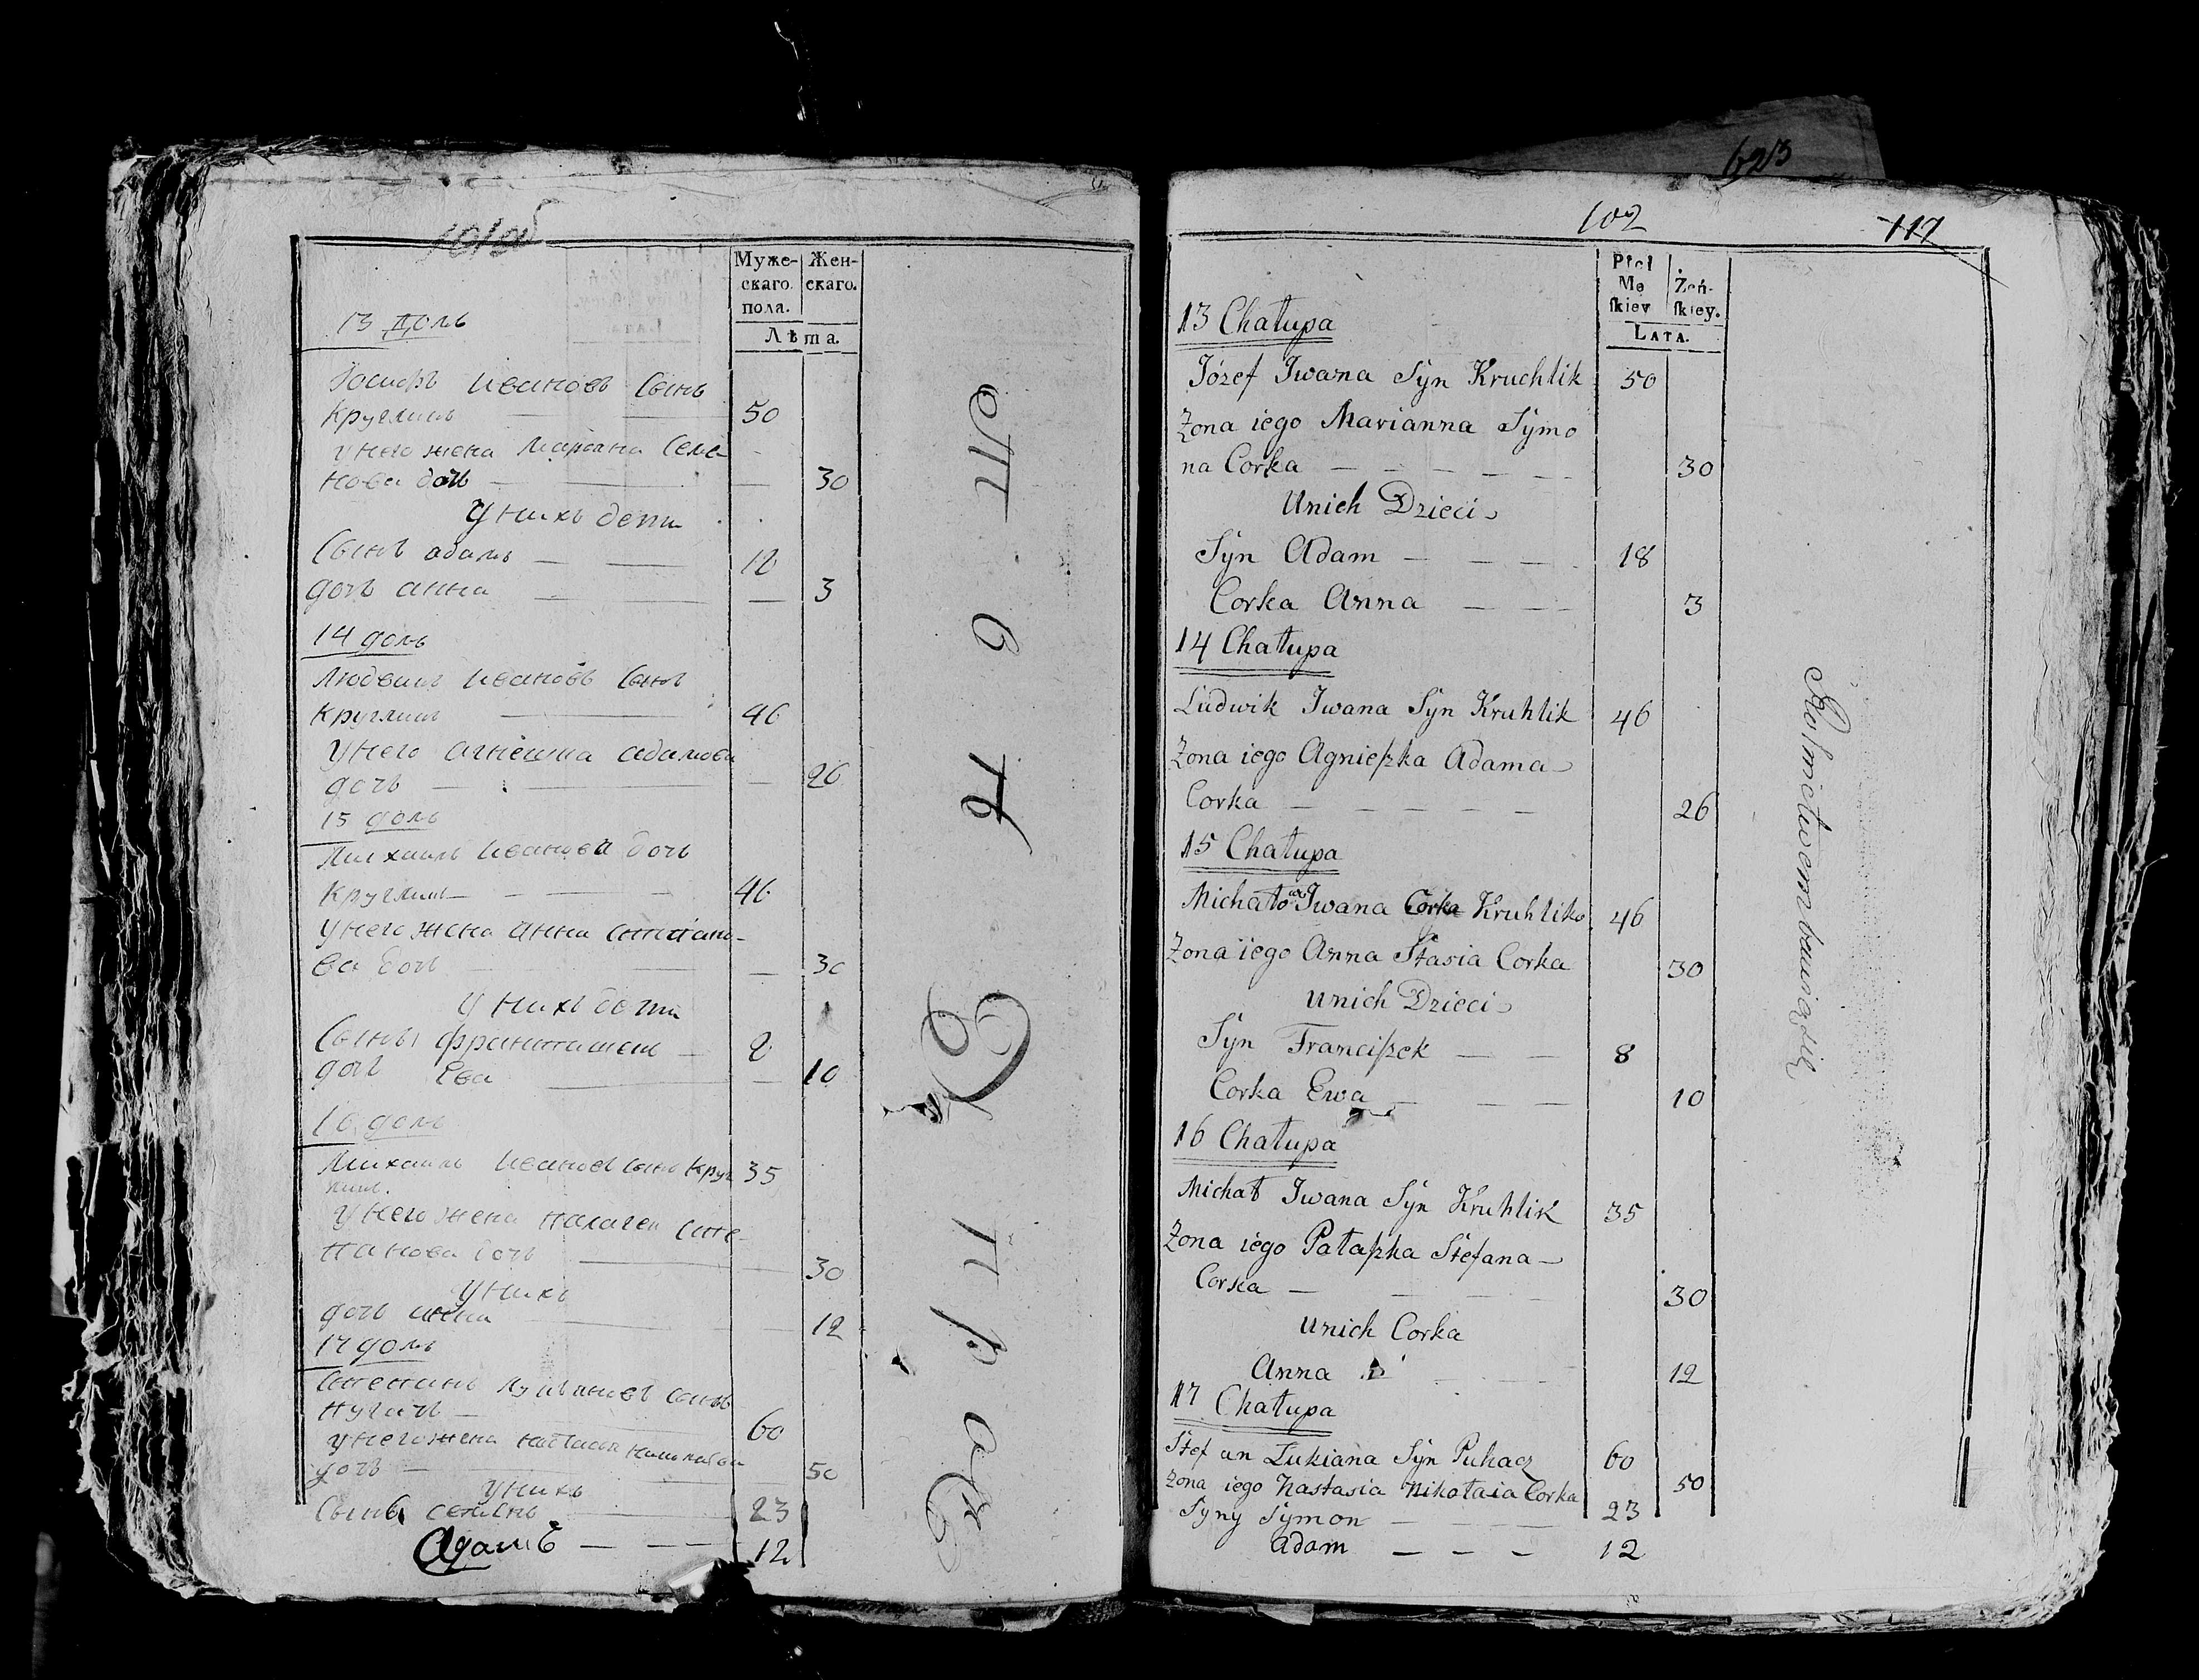 Муже-
скаго
пола.
Жен-
скаго.
Лѣта.
13 домъ
Іосифъ Ивановъ Сынъ
Круглик — — 50
У него жена Марiана Семе-
нова дочь — — — 30
У нихъ дети
Сынъ адамъ — — 18
дочь анна — — — 3
14 домъ
Людвигъ Ивановъ Сынъ
Круглик — 46
У него агнешка адамова
дочь — — — 26
15 домъ
Михаилъ Иванова дочь
Круглик — — — 46
У него жена анна
ва дочь — — — 30
У нихъ дети
Сынъ — 8
дочь Ева — — 10
16 домъ
Михаилъ Ивановъ сынъ Круг 35
лик.
У него жена палагея Сте-
панова дочь — — 30
У нихъ
дочь анна — — 12
17 домъ
Степанъ Лукьяновъ сынъ
Пугачъ — 60
У него жена настасья
дочь — — 50
У нихъ
Сынъ семенъ — 23
Адамъ — — — 12
102
117
623
Płci
Mę
ſkiey
Żeń-
ſkiey.
LATA.
13 Chałupa
Józef Jwana Syn Kruchlik 50
Żona iego Marianna Symo
na Corka — — — — — 30
Unich Dzieci
Syn Adam — — — 18
Corka Anna — — — 3
14 Chałupa
Ludwik Jwana Syn Kruhlik 46
Żona iego Agnieſzka Adama
Corka — — — — — 26
15 Chałupa
Michało Jwana Corka Kruhliko 46
Żona iego Anna Stasia Corka 30
Unich Dzieci
Syn Franciſzek — — 8
Corka Ewa — — — 10
16 Chałupa
Michał Jwana Syn Kruhlik 35
Żona iego Pałaſzka Stefana
Corka — — — 30
Unich Corka
Anna — — 12
17 Chałupa
Stefan Lukiana Syn Puhacz 60
Żona iego Nastasia Nikołaia Corka 50
Syny Symon — — — — 23
Adam — — — 12